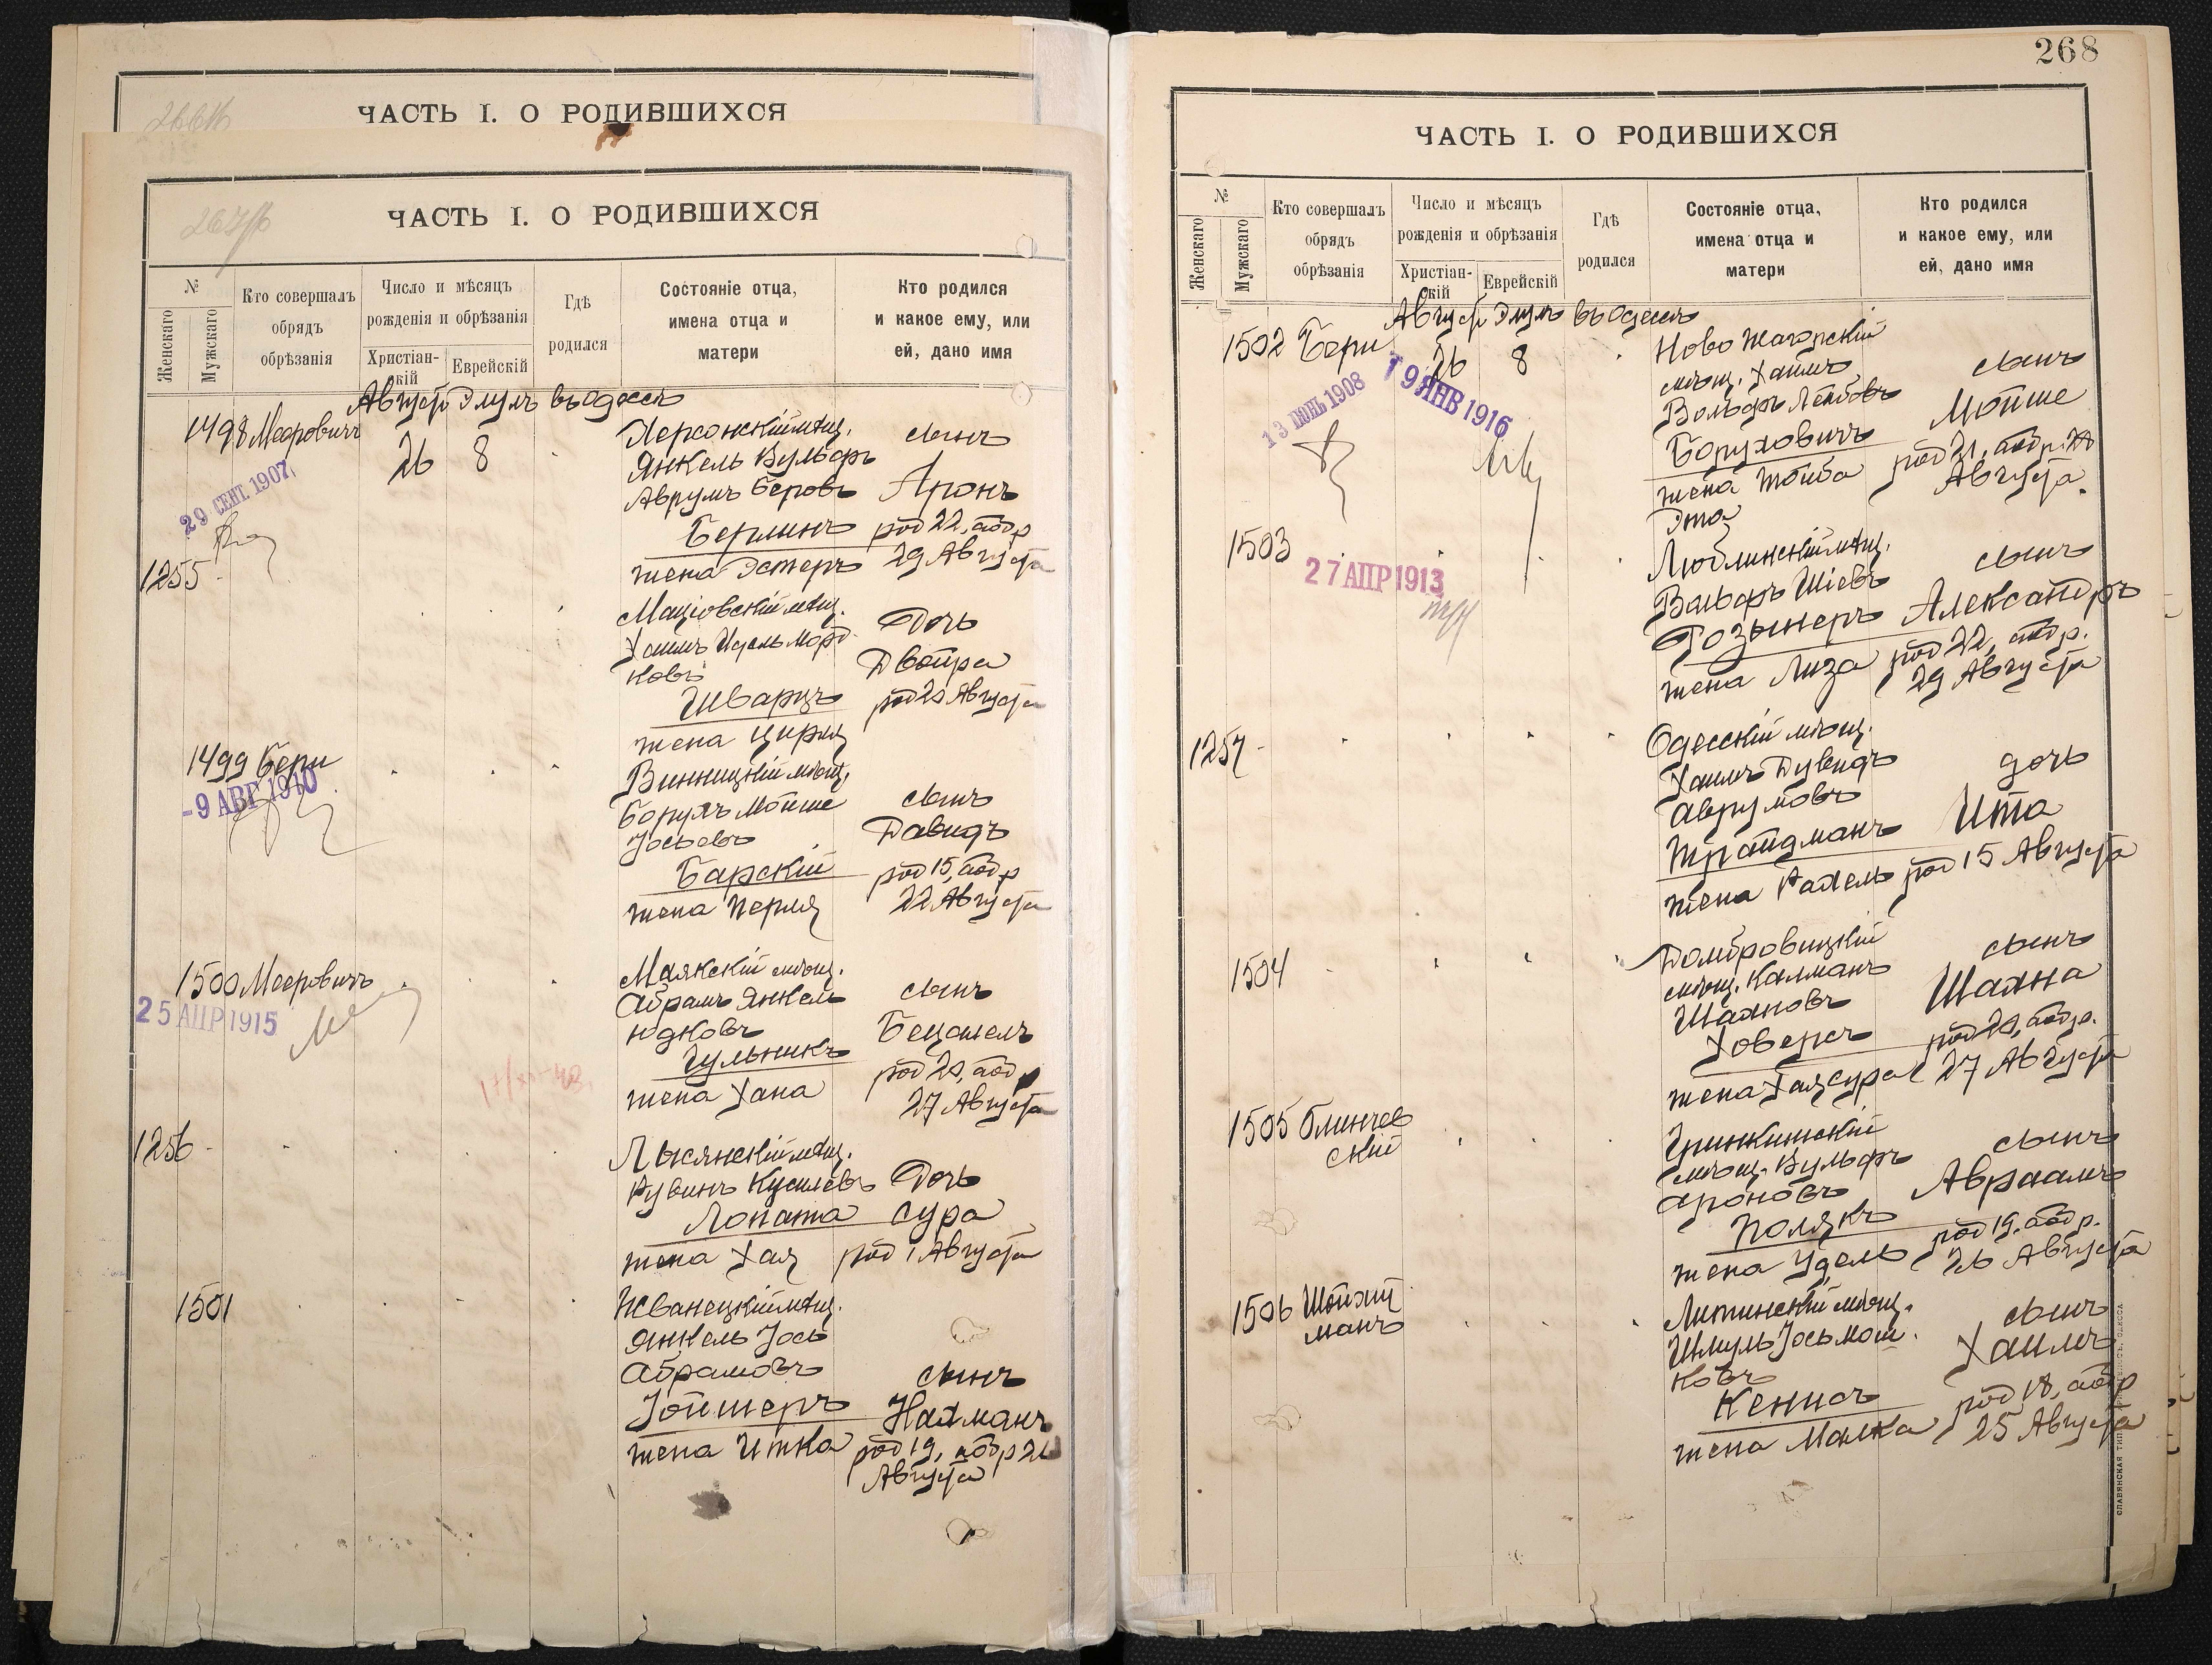 ЧАСТЬ I. О РОДИВШИХСЯ
ЧАСТЬ I. О РОДИВШИХСЯ
№
Женскаго
Мужскаго
Кто совершалъ
обрядъ
обрѣзанія
Число и мѣсяцъ
рожденія и обрѣзанія
Христіан-
скій
Еврейскій
Гдѣ
родился
Состояніе отца,
имена отца и
матери
Кто родился
и какое ему, или
ей, дано имя
Августъ Элулъ въ Одессѣ
1498 Мееровичъ
26 8
29 СЕНТ. 1907
Херсонскій мѣщ.
Янкель Вульфъ
Аврумъ Беровъ
Берлинъ
жена Эстеръ
сынъ
Аронъ
род 22, обр
29 Августа
1255
Маціовскій мѣщ.
Хаимъ Идель Морд-
ковъ
Шварцъ
жена Цирля
Дочь
Двойра
род 20 Августа
1499 Бери
-9 АВГ 1910
Винницкій мѣщ.
Борухъ Мойше
Іосьевъ
Барскій
жена Перля
сынъ
Давидъ
род 15, обр
22 Августа
1500 Мееровичъ
25 АПР 1915
Маякскій мѣщ.
Абрамъ Янкель
Юдковъ
Гульникъ
жена Хана
сынъ
Бецалель
род 20, обр
27 Августа
1256
Лысянскій мѣщ.
Рувинъ Кусилевъ
Лопата
жена Хая
Дочь
Сура
род 1 Августа
1501
Жванецкій мѣщ.
Янкель Іось
Абрамовъ
Іойшеръ
жена Итка
сынъ
Нахманъ
род 19, обр 26
Августа
268
ЧАСТЬ I. О РОДИВШИХСЯ
№
Женскаго
Мужскаго
Кто совершалъ
обрядъ
обрѣзанія
Число и мѣсяцъ
рожденія и обрѣзанія
Христіан-
скій
Еврейскій
Гдѣ
родился
Состояніе отца,
имена отца и
матери
Кто родился
и какое ему, или
ей, дано имя
Августъ Элулъ въ Одессѣ
1502 Бери
26 8
13 ІЮНЬ 1908
19 ЯНВ 1916
Ново Жагорскій
мѣщ. Хаимъ
Вольфъ Лейбовъ
Боруховичъ
жена Тойба
Эта
сынъ
Мойше
род 21, обр. 28
Августа.
1503
27 АПР 1913
Люблинскій мѣщ.
Вольфъ Шіевъ
Розынеръ
жена Лиза
сынъ
Александръ
род 22, обр.
29 Августа
1257
Одесскій мѣщ.
Хаимъ Дувидъ
Аврумовъ
Трайдманъ
жена Рахель
дочь
Ита
род 15 Августа
1504
Домбровицкій
мѣщ. Калманъ
Шахновъ
Ховерсъ
жена Хая Сура
сынъ
Шахна
род 20, обр.
27 Августа
1505 Блинчев
скій
Гринкишскій
мѣщ. Вульфъ
Ароновъ
Полякъ
жена Удель
сынъ
Авраамъ
род 19, обр.
26 Августа
1506 Шойхит
манъ
Литинскій мѣщ.
Шмуль Іось Мош-
ковъ
Кенисъ
жена Малка
сынъ
Хаимъ
род 18, обр
25 Августа